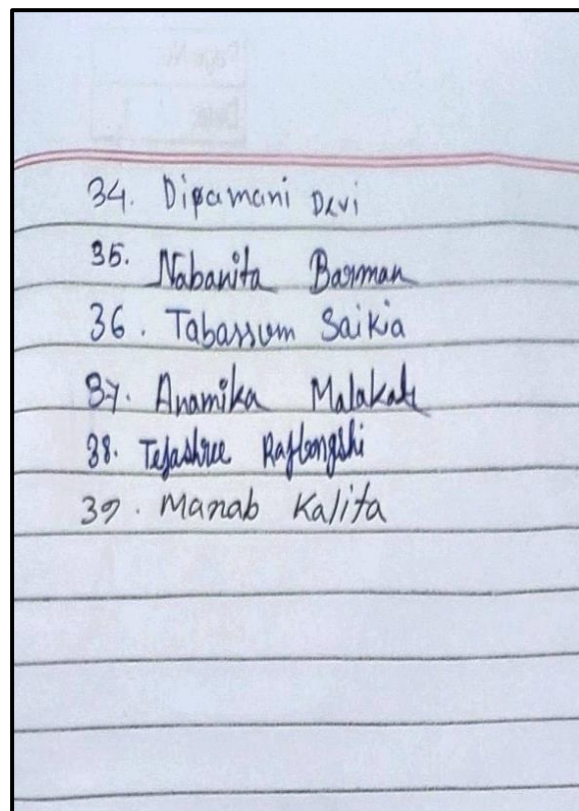 34. Dipamani Devi
35. Nabanita Barman
36. Tabassum Saikia
37. Anamika Malakar
38. Tejashree Rajbongshi
39. Manab Kalita